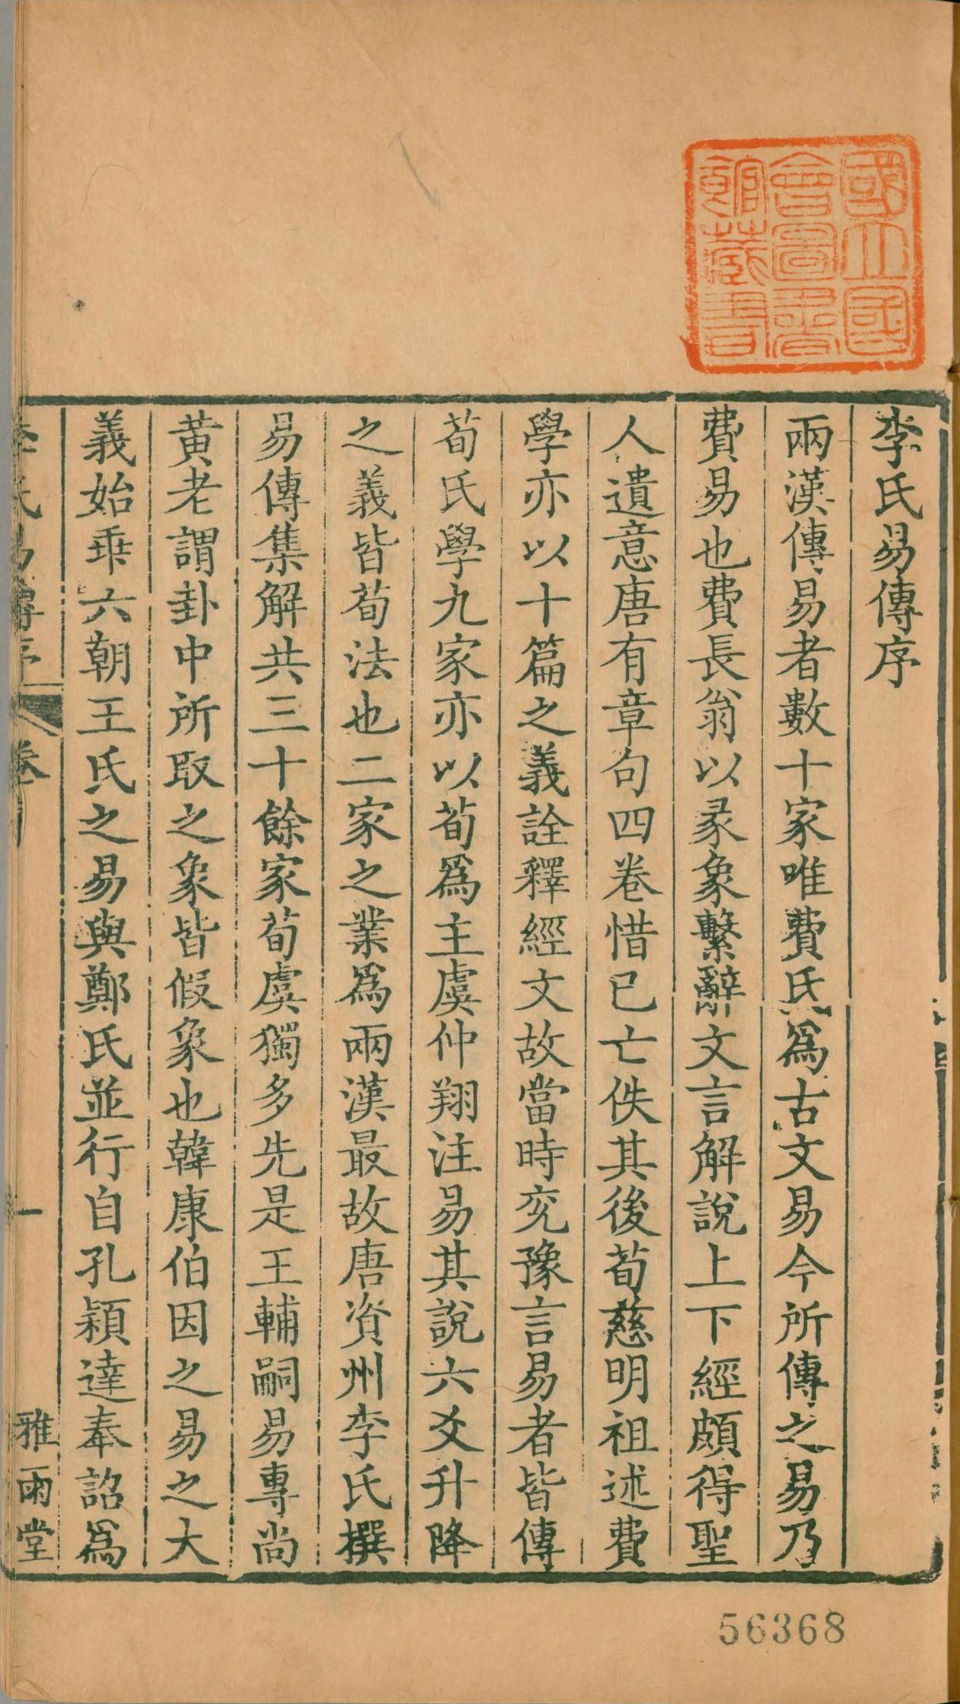 國立國
會圖書
館藏書
李氏易傳序
兩漢傳易者數十家唯費氏爲古文易今所傳之易乃
費易也費長翁以彖象繫辭文言解說上下經頗得聖
人遺意唐有章句四卷惜已亡佚其後荀慈明祖述費
學亦以十篇之義詮釋經文故當時兗豫言易者皆傳
荀氏學九家亦以荀爲主虞仲翔注易其說六爻升降
之義皆荀法也二家之業爲兩漢最故唐資州李氏撰
易傳集解共三十餘家荀虞獨多先是王輔嗣易專尚
黃老謂卦中所取之象皆假象也韓康伯因之易之大
義始乖六朝王氏之易與鄭氏並行自孔穎達奉詔爲
李氏易傳序
一
雅雨堂
56368